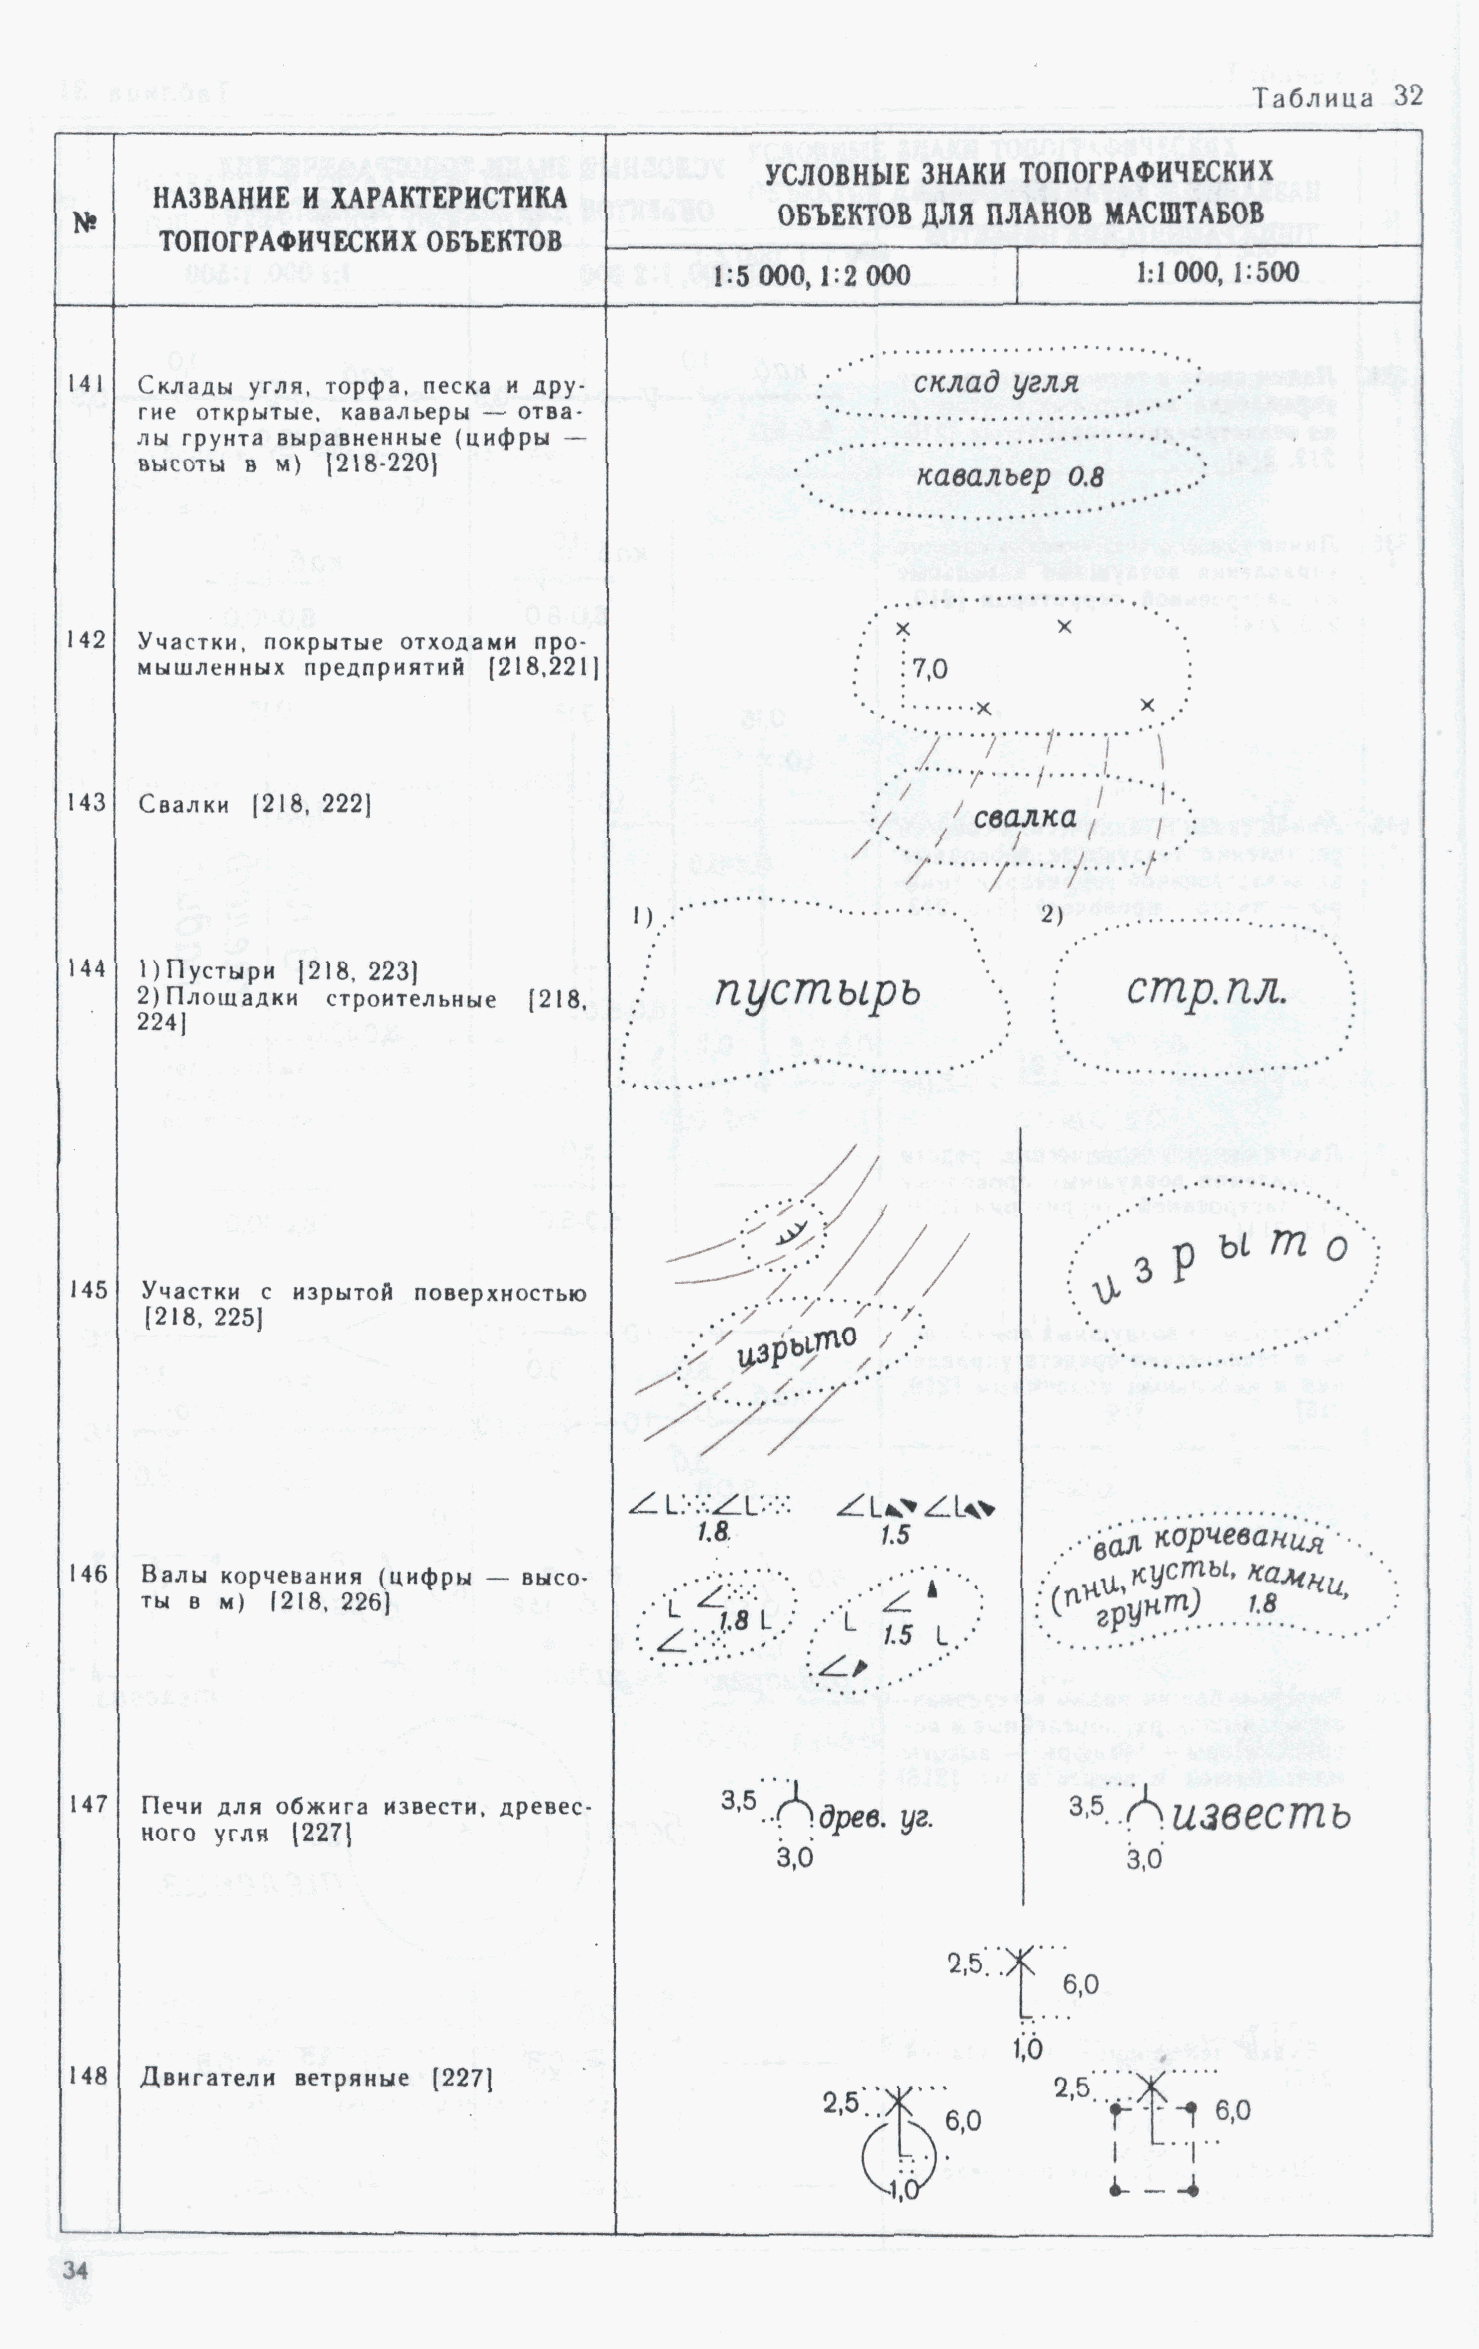 Таблица 32
№
НАЗВАНИЕ И ХАРАКТЕРИСТИКА
ТОПОГРАФИЧЕСКИХ ОБЪЕКТОВ
УСЛОВНЫЕ ЗНАКИ ТОПОГРАФИЧЕСКИХ
ОБЪЕКТОВ ДЛЯ ПЛАНОВ МАСШТАБОВ
1:5 000, 1:2 000
1:1 000, 1:500
141
Склады угля, торфа, песка и дру-
гие открытые, кавальеры — отва-
лы грунта выравненные (цифры —
высоты в м) [218-220]
склад угля
кавальер 0.8
142
Участки, покрытые отходами про-
мышленных предприятий [218,221]
7,0
143
Свалки [218, 222]
свалка
144
1) Пустыри [218, 223]
2) Площадки строительные [218,
224]
1)
пустырь
2)
стр.пл.
145
Участки с изрытой поверхностью
[218, 225]
изрыто
изрыто
146
Валы корчевания (цифры — высо-
ты в м) [218, 226]
1.8
1.5
1.8
1.5
вал корчевания
(пни, кусты, камни,
грунт) 1.8
147
Печи для обжига извести, древес-
ного угля [227]
3,5
древ. уг.
3,0
3,5
известь
3,0
148
Двигатели ветряные [227]
2,5
6,0
1,0
2,5
6,0
1,0
2,5
6,0
34